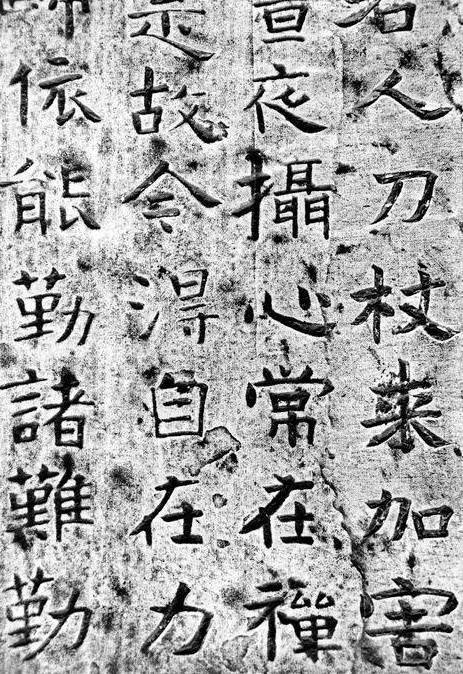 若人刀杖来加害
晝夜攝心常在禪
是故今得自在力
依能勤諸難勤